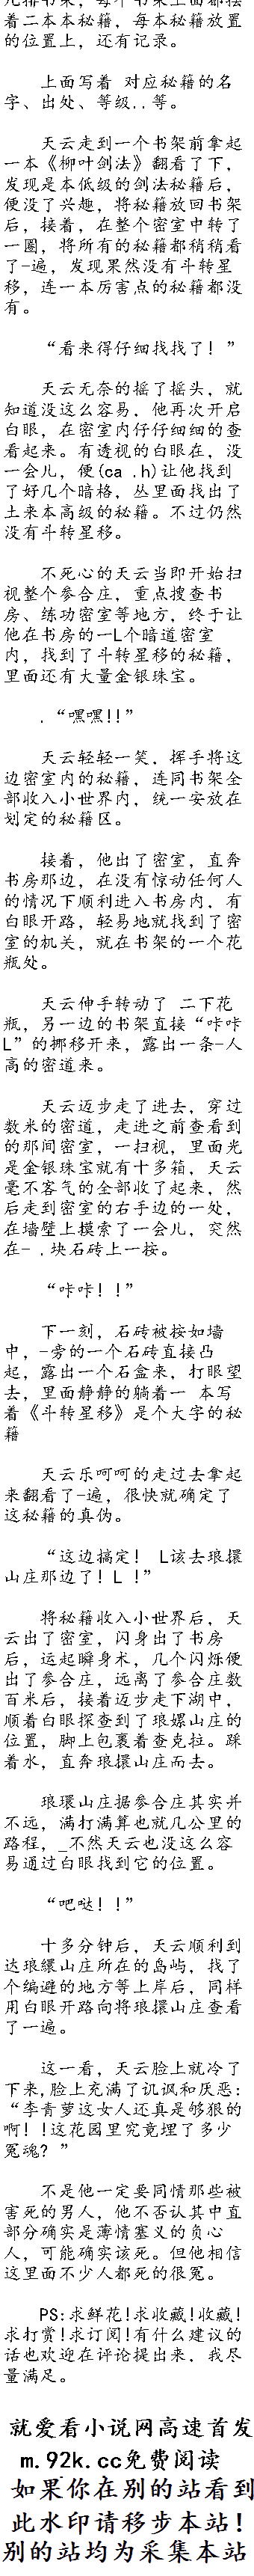 着二本本秘籍，每本秘籍放置
的位置上，还有记录。
上面写着 对应秘籍的名
字、出处、等级..等。
天云走到一个书架前拿起
一本《柳叶剑法》翻看了下，
发现是本低级的剑法秘籍后，
便没了兴趣，将秘籍放回书架
后，接着，在整个密室中转了
一圈，将所有的秘籍都稍稍看
了-遍，发现果然没有斗转星
移，连一本厉害点的秘籍都没
有。
“看来得仔细找找了！”
天云无奈的摇了摇头，就
知道没这么容易，他再次开启
白眼，在密室内仔仔细细的查
看起来。有透视的白眼在，没
一会儿，便(ca .h)让他找到
了好几个暗格，丛里面找出了
土来本高级的秘籍。不过仍然
没有斗转星移。
不死心的天云当即开始扫
视整个参合庄，重点搜查书
房、练功密室等地方，终于让
他在书房的一L个暗道密室
内，找到了斗转星移的秘籍，
里面还有大量金银珠宝。
.“嘿嘿!!”
天云轻轻一笑．挥手将这
边密室内的秘籍，连同书架全
部收入小世界内，统一安放在
划定的秘籍区。
接着，他出了密室，直奔
书房那边，在没有惊动任何人
的情况下顺利进入书房内，有
白眼开路，轻易地就找到了密
室的机关，就在书架的一个花
瓶处。
天云伸手转动了 二下花
瓶，另一边的书架直接“咔咔
L”的挪移开来，露出一条-人
高的密道来。
天云迈步走了进去，穿过
数米的密道，走进之前查看到
的那间密室，一扫视，里面光
是金银珠宝就有十多箱，天云
毫不客气的全部收了起来，然
后走到密室的右手边的一处，
在墙壁上摸索了一会儿，突然
在- .块石砖上一按。
“咔咔！！”
下一刻，石砖被按如墙
中，-旁的一个石砖直接凸
起，露出一个石盒来，打眼望
去，里面静静的躺着一 本写
着《斗转星移》是个大字的秘
籍
天云乐呵呵的走过去拿起
来翻看了-遍，很快就确定了
这秘籍的真伪。
“这边搞定！ L该去琅擐
山庄那边了！L ！”
将秘籍收入小世界后，天
云出了密室，闪身出了书房
后，运起瞬身术，几个闪烁便
出了参合庄，远离了参合庄数
百米后，接着迈步走下湖中，
顺着白眼探查到了琅嫘山庄的
位置，脚上包裹着查克拉。踩
着水，直奔琅擐山庄而去。
琅環山庄据参合庄其实并
不远，满打满算也就几公里的
路程，_不然天云也没这么容
易通过白眼找到它的位置。
“吧哒！！”
十多分钟后，天云顺利到
达琅缳山庄所在的岛屿，找了
个编避的地方等上岸后，同样
用白眼开路向将琅擐山庄查看
了一遍。
这一看，天云脸上就冷了
下来,脸上充满了讥讽和厌恶：
“李青萝这女人还真是够狠的
啊！!这花园里究竟埋了多少
冤魂？”
不是他一定要同情那些被
害死的男人，他不否认其中直
部分确实是薄情塞义的负心
人，可能确实该死。但他相信
这里面不少人都死的很冤。
PS:求鲜花!求收藏!收藏!
求打赏!求订阅!有什么建议的
话也欢迎在评论提出来，我尽
量满足。
就爱看小说网高速首发
m.92k.cc免费阅读
如果你在别的站看到
此水印请移步本站！
别的站均为采集本站